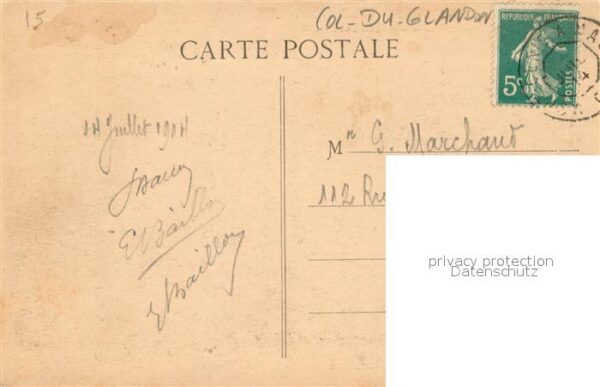 15
COL-DU-GLANDON
CARTE POSTALE
RÉPUBLIQUE FRANÇAISE
5c
POSTES
14 Juillet 1914
E Baillon
E Baillon
Mr G. Marchand
112 Ru
privacy protection
Datenschutz